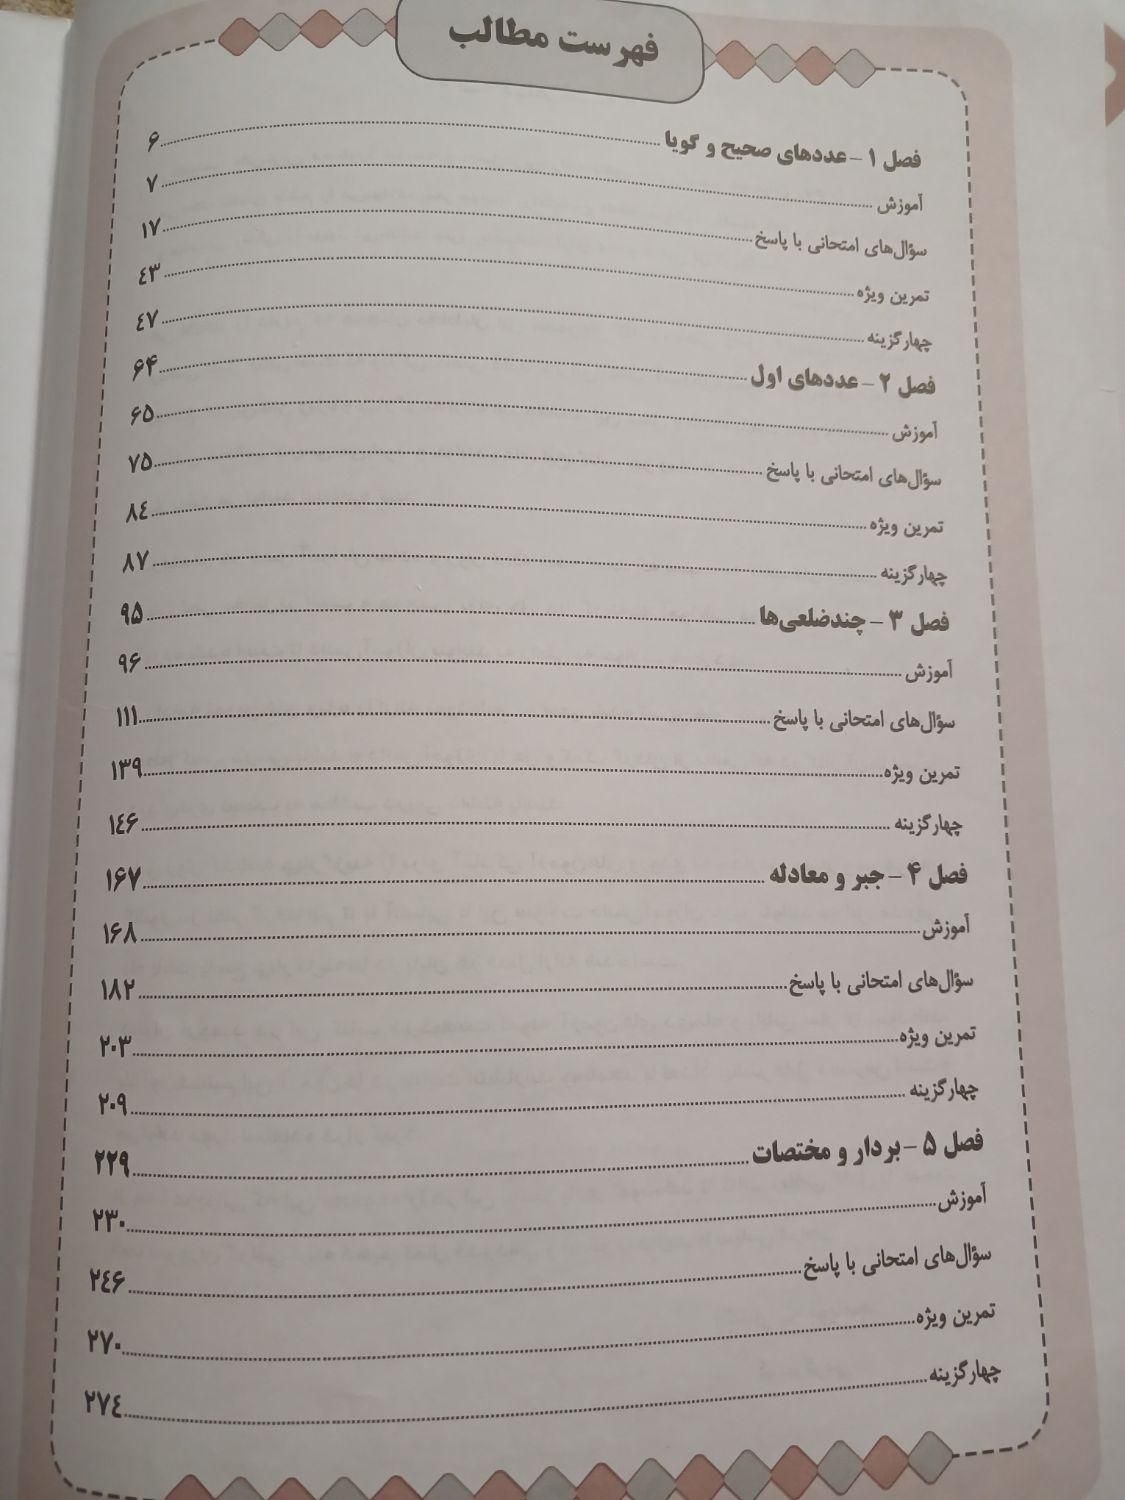 فهرست مطالب
فصل ۱ – عددهای صحیح و گویا ۶
آموزش ۷
سؤال‌های امتحانی با پاسخ ۱۷
تمرین ویژه ۴۳
چهارگزینه ۴۷
فصل ۲ – عددهای اول ۶۴
آموزش ۶۵
سؤال‌های امتحانی با پاسخ ۷۵
تمرین ویژه ۸۴
چهارگزینه ۸۷
فصل ۳ – چندضلعی‌ها ۹۵
آموزش ۹۶
سؤال‌های امتحانی با پاسخ ۱۱۱
تمرین ویژه ۱۳۹
چهارگزینه ۱۴۶
فصل ۴ – جبر و معادله ۱۶۷
آموزش ۱۶۸
سؤال‌های امتحانی با پاسخ ۱۸۲
تمرین ویژه ۲۰۳
چهارگزینه ۲۰۹
فصل ۵ – بردار و مختصات ۲۲۹
آموزش ۲۳۰
سؤال‌های امتحانی با پاسخ ۲۴۶
تمرین ویژه ۲۷۰
چهارگزینه ۲۷۴